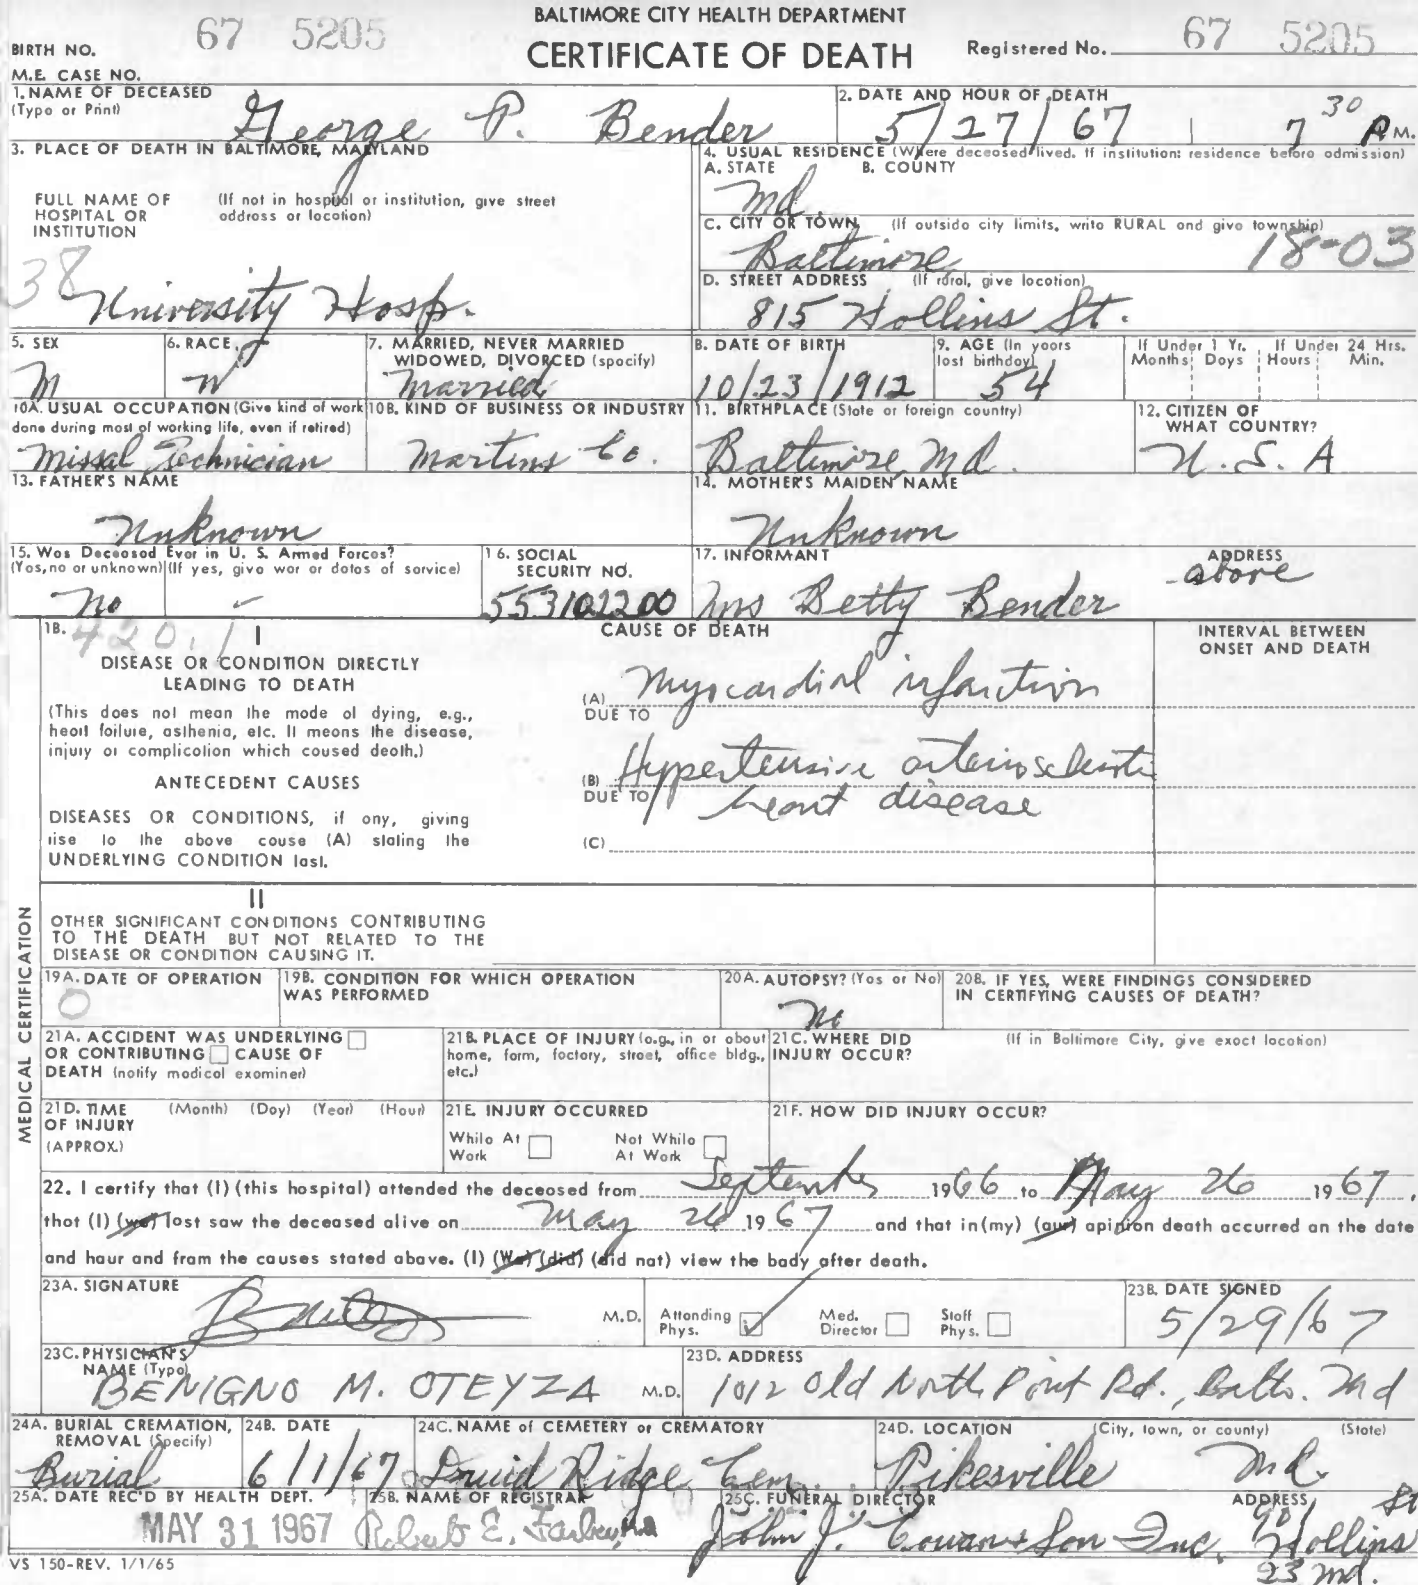 BALTIMORE CITY HEALTH DEPARTMENT
CERTIFICATE OF DEATH
BIRTH NO. 67 5205
Registered No. 67 5205
M.E. CASE NO.
1. NAME OF DECEASED (Type or Print) George P. Bender
2. DATE AND HOUR OF DEATH 5/27/67 7 30 A M.
3. PLACE OF DEATH IN BALTIMORE, MARYLAND
FULL NAME OF HOSPITAL OR INSTITUTION (If not in hospital or institution, give street address or location)
38
University Hosp.
4. USUAL RESIDENCE (Where deceased lived. If institution: residence before admission)
A. STATE B. COUNTY
Md.
C. CITY OR TOWN (If outside city limits, write RURAL and give township)
Baltimore 18-03
D. STREET ADDRESS (If rural, give location)
815 Hollins St.
5. SEX M
6. RACE W
7. MARRIED, NEVER MARRIED WIDOWED, DIVORCED (specify) Married
8. DATE OF BIRTH 10/23/1912
9. AGE (In years last birthday) 54
If Under 1 Yr. Months Days
If Under 24 Hrs. Hours Min.
10A. USUAL OCCUPATION (Give kind of work done during most of working life, even if retired) Missal Technician
10B. KIND OF BUSINESS OR INDUSTRY Martins Co.
11. BIRTHPLACE (State or foreign country) Baltimore, Md.
12. CITIZEN OF WHAT COUNTRY? U.S.A
13. FATHER'S NAME Unknown
14. MOTHER'S MAIDEN NAME Unknown
15. Was Deceased Ever in U. S. Armed Forces? (Yes, no or unknown) (If yes, give war or dates of service) No -
16. SOCIAL SECURITY NO. 553101200
17. INFORMANT Mrs Betty Bender
ADDRESS above
18. 420.1
I
DISEASE OR CONDITION DIRECTLY LEADING TO DEATH
(This does not mean the mode of dying, e.g., heart failure, asthenia, etc. It means the disease, injury or complication which caused death.)
ANTECEDENT CAUSES
DISEASES OR CONDITIONS, if any, giving rise to the above cause (A) stating the UNDERLYING CONDITION last.
CAUSE OF DEATH
INTERVAL BETWEEN ONSET AND DEATH
(A) Myocardial infarction
DUE TO
(B) Hypertensive arteriosclerotic
DUE TO heart disease
(C)
II
OTHER SIGNIFICANT CONDITIONS CONTRIBUTING TO THE DEATH BUT NOT RELATED TO THE DISEASE OR CONDITION CAUSING IT.
MEDICAL CERTIFICATION
19A. DATE OF OPERATION 0
19B. CONDITION FOR WHICH OPERATION WAS PERFORMED
20A. AUTOPSY? (Yes or No) No
20B. IF YES, WERE FINDINGS CONSIDERED IN CERTIFYING CAUSES OF DEATH?
21A. ACCIDENT WAS UNDERLYING OR CONTRIBUTING CAUSE OF DEATH (notify medical examiner)
21B. PLACE OF INJURY (e.g., in or about home, farm, factory, street, office bldg., etc.)
21C. WHERE DID INJURY OCCUR? (If in Baltimore City, give exact location)
21D. TIME OF INJURY (APPROX.) (Month) (Day) (Year) (Hour)
21E. INJURY OCCURRED
While At Work Not While At Work
21F. HOW DID INJURY OCCUR?
22. I certify that (I) (this hospital) attended the deceased from September 1966 to May 26 1967,
that (I) (we) last saw the deceased alive on May 26 1967 and that in (my) (our) opinion death accurred an the date
and hour and from the causes stated above. (I) (We) (did) (did not) view the body after death.
23A. SIGNATURE M.D.
Attending Phys. Med. Director Staff Phys.
23B. DATE SIGNED 5/29/67
23C. PHYSICIAN'S NAME (Type) BENIGNO M. OTEYZA M.D.
23D. ADDRESS 1012 Old North Point Rd., Balto. Md
24A. BURIAL CREMATION, REMOVAL (Specify) Burial
24B. DATE 6/1/67
24C. NAME of CEMETERY or CREMATORY Druid Ridge Cem.
24D. LOCATION (City, town, or county) (State) Pikesville Md.
25A. DATE REC'D BY HEALTH DEPT. MAY 31 1967
25B. NAME OF REGISTRAR Robert E. Farber, M.D.
25C. FUNERAL DIRECTOR John J. Cowan & Son Inc.
ADDRESS 901 Hollins St
23 Md.
VS 150-REV. 1/1/65